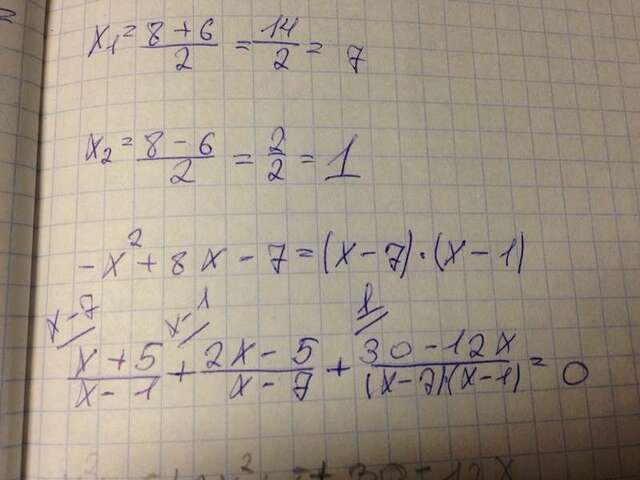 x₁ = (8+6)/2 = 14/2 = 7
x₂ = (8-6)/2 = 2/2 = 1
-x² + 8x - 7 = (x-7)·(x-1)
x-7 x-1 1
(x+5)/(x-1) + (2x-5)/(x-7) + (30-12x)/((x-7)(x-1)) = 0
30-12x